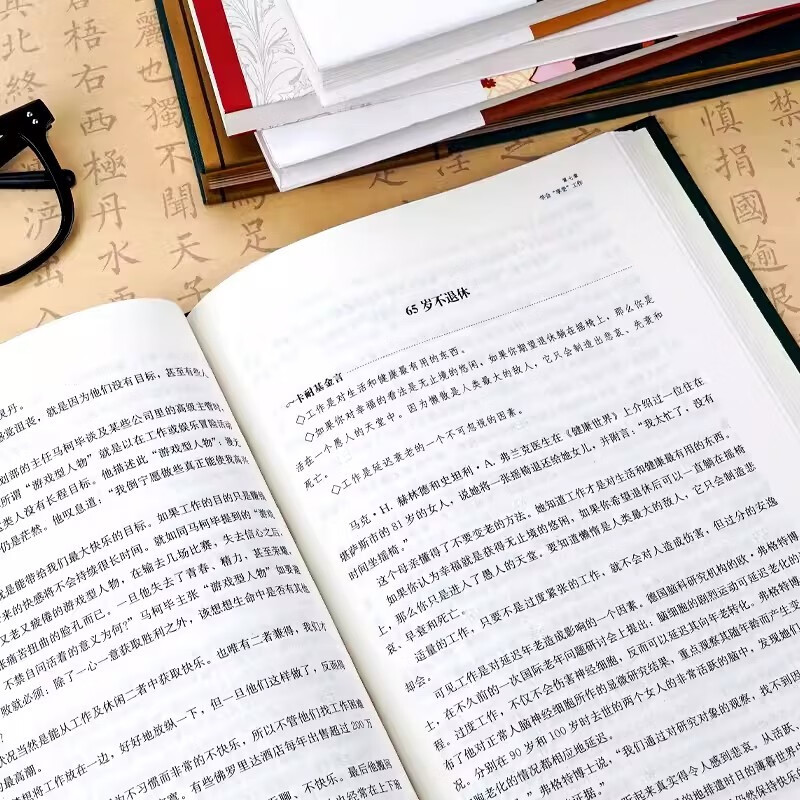 昃丹。
感觉沮丧，就是因为他们没有目标，甚至有些人
划部的主任马柯毕谈及某些公司里的高级主管时，
所谓“游戏型人物”就是以在工作或娱乐冒险活动
这类人没有长程目标。他描述此“游戏型人物”：漫无
仍是茫然。他叹息道：“我倒宁愿做些真正能使我高兴
就是能带给我们最大快乐的目标。如果工作的目的只是赚钱
来的快感将不会持续很长时间。就如同马柯毕提到的“游戏
又老又疲倦的游戏型人物，在输去几场比赛，失去信心之后，
张痛苦扭曲的脸孔而已。一旦他失去了青春、精力，甚至荣耀，
不禁自问活着的意义为何？”马柯毕主张“游戏型人物”如要避
败就必须：除了一心一意获取胜利之外，该想想生命中是否有其他
状况当然是能从工作及休闲二者中获取快乐。也唯有二者兼得，我们才
的最高潮。
想将工作放在一边，好好地放纵一下，但一旦他们这样做了，反而得
为不习惯而非常的不快乐，所以不管他们找工作困难
宾。有些佛罗里达酒店每年出售超过200万
聊、不快乐。最后他搬回
也经常在上下班
第七章
学会“享受”工作
65岁不退休
卡耐基金言
◇工作是对生活和健康最有用的东西。
◇如果你对幸福的看法是无止境的悠闲，如果你期望退休躺在摇椅上，那么你是
活在一个愚人的天堂中。因为懒散是人类最大的敌人，它只会制造出悲哀、先衰和
死亡。
◇工作是延迟衰老的一个不可忽视的因素。
马克·H．赫林德和史坦利·A．弗兰克医生在《健康世界》上介绍过一位住在
堪萨斯市的81岁的女人，说她将一张摇椅退还给她女儿，并附言：“我太忙了，没有
时间坐摇椅。”
这个母亲懂得了不要变老的方法。她知道工作才是对生活和健康最有用的东西。
如果你认为幸福就是获得无止境的悠闲，如果你希望退休后可以一直躺在摇椅
上，那么你只是进入了愚人的天堂。要知道懒惰是人类最大的敌人，它只会制造悲
哀、早衰和死亡。
适量的工作，只要不是过度紧张的工作，就不会对人造成伤害，但过分的安逸
却会。
可见工作是对延迟年老造成影响的一个因素。德国脑科研究机构的欧·弗格特博
士，在不久前的一次国际老年问题研讨会上提出：脑细胞的剧烈运动可延迟老化的
程。过度工作，不仅不会伤害神经细胞，反而可以延迟其向年老转化。弗格特博
布了他对正常人脑神经细胞所作的显微研究结果，重点观察其随年龄而产生变
况。分别在90岁和100岁时去世的两个女人的非常活跃的脑中，发现她们
胞老化的情况都相应地延迟。
”弗格特博士说，“我们通过对研究对象的观察，找不到因
证据。”
起来真实得令人感到悲哀。从活跃、
的地排遣时日的薄暮世界
仍然保持快乐
北
終
梧
右
西
極
丹
水
麗
也
獨
不
聞
天
子
馬
足
之
慎
捐
國
逾
禁